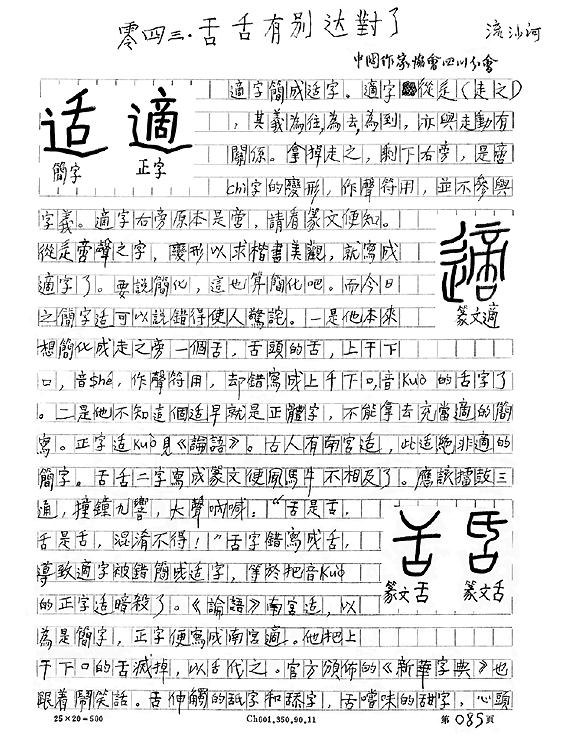 零四三.舌𠯑有别达對了
流沙河
中国作家協會四川分會
适 適
簡字 正字
適字簡成适字。適字從辵（走之）
，其義為往,為去,為到，亦與走動有
關係。拿掉走之，剩下右旁，是啻
chì字的變形，作聲符用，並不參與
字義。適字右旁原本是啻，請看篆文便知。
從辵啻聲之字，變形以求楷書美觀，就寫成
適字了。要說簡化，這也算簡化吧。而今日
之簡字适可以說錯得使人驚詫。一是他本來
想簡化成走之旁一個舌，舌頭的舌，上干下
口，音shé，作聲符用，却錯寫成上千下口,音Kuò的舌字了
。二是他不知這個适早就是正體字，不能拿去充當適的簡
寫。正字适kuò見《論語》。古人有南宮适，此适絶非適的
簡字。舌𠯑二字寫成篆文便風馬牛不相及了。應該擂鼓三
通，撞鐘九響，大聲喊喊："舌是舌，
𠯑是𠯑，混淆不得！"舌字錯寫成𠯑，
導致適字被錯簡成适字，等於把音Kuò
的正字适暗殺了。《論語》南宮适，以
為是簡字，正字便寫成南宮適。他把上
干下口的舌滅掉，以𠯑代之。官方頒佈的《新華字典》也
跟着鬧笑話。舌伸觸的舐字和舔字，舌嚐味的甜字，心頭
篆文適
篆文舌 篆文𠯑
25×20=500 Ch001.350.90.11 第085頁